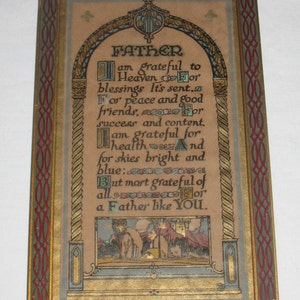 FATHER
I am grateful to
Heaven For
blessings It's sent,
For peace and good
friends, For
success and content.
I am grateful for
health And
for skies bright and
blue;
But most grateful of
all, For
a Father like YOU.